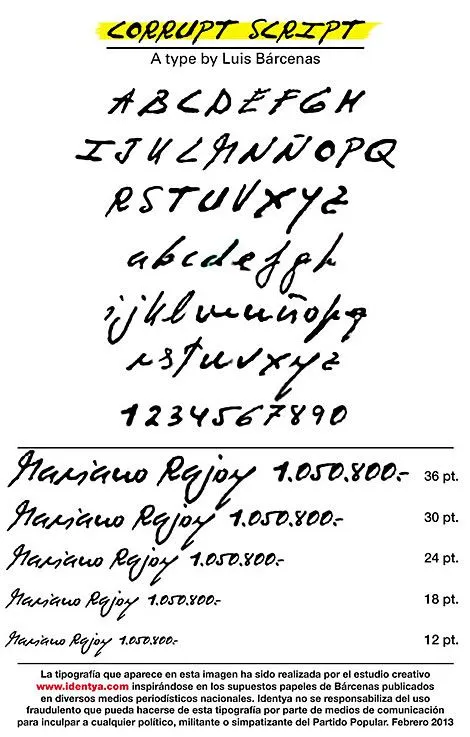 CORRUPT SCRIPT
A type by Luis Bárcenas
A B C D E F G H
I J K L M N Ñ O P Q
R S T U V X Y Z
a b c d e f g h
i j k l v m u ñ o p q
r s t u v x y z
1 2 3 4 5 6 7 8 9 0
Mariano Rajoy 1.050.800.- 36 pt.
Mariano Rajoy 1.050.800.- 30 pt.
Mariano Rajoy 1.050.800.- 24 pt.
Mariano Rajoy 1.050.800.- 18 pt.
Mariano Rajoy 1.050.800.- 12 pt.
La tipografía que aparece en esta imagen ha sido realizada por el estudio creativo
www.identya.com inspirándose en los supuestos papeles de Bárcenas publicados
en diversos medios periodísticos nacionales. Identya no se responsabiliza del uso
fraudulento que pueda hacerse de esta tipografía por parte de medios de comunicación
para inculpar a cualquier político, militante o simpatizante del Partido Popular. Febrero 2013